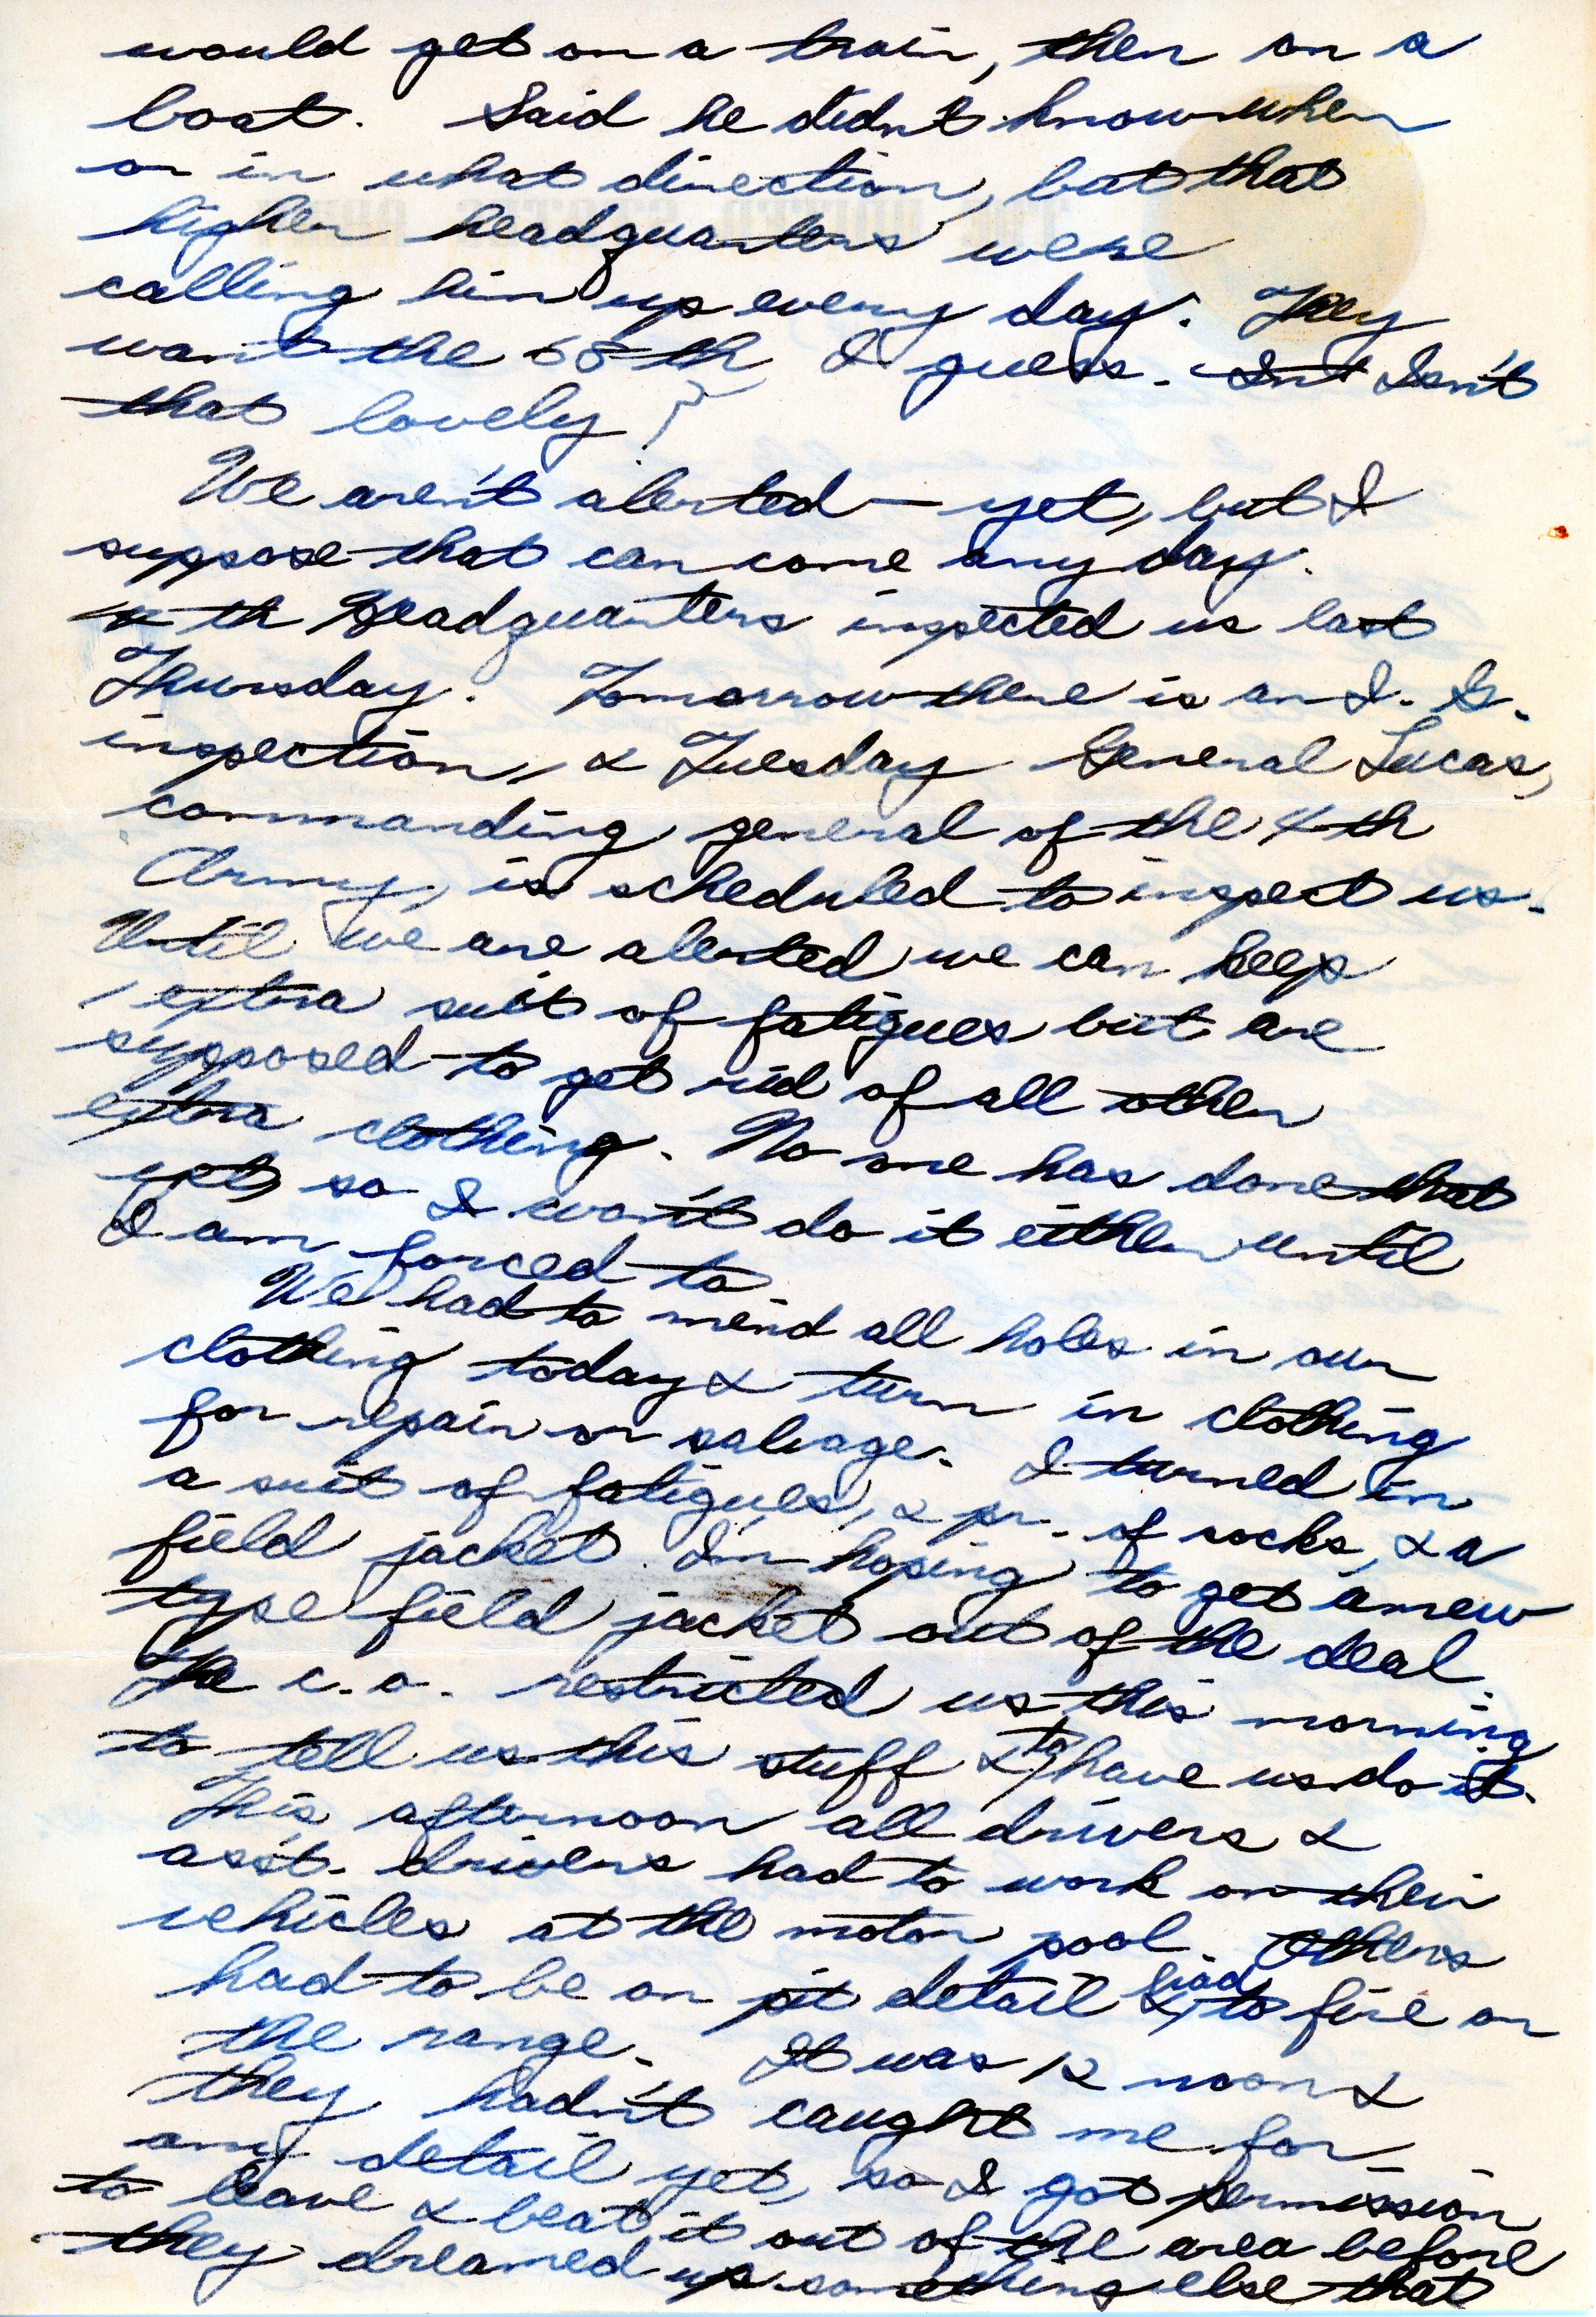 would get on a train, then on a
boat. Said he didn't know when
or in what direction, but that
higher headquarters were
calling him up every day. They
want the 65th I guess. Isn't
that lovely?
We aren't alerted — yet, but I
suppose that can come any day.
Headquarters inspected us last
Thursday. Tomorrow there is an I. G.
inspection, & Tuesday General Lucas,
commanding general of the 4th
Army, is scheduled to inspect us.
Until we are alerted we can keep
1 extra suit of fatigues but are
supposed to get rid of all other
extra clothing. No one has done that
yet, so I won't do it either until
I am forced to
We had to mend all holes in our
clothing today & turn in clothing
for repair or salvage. I turned in
a suit of fatigues, 2 pr. of socks, & a
field jacket. I'm hoping to get a new
type field jacket out of the deal.
The c.o. restricted us this morning
to tell us this stuff & to have us do it.
This afternoon all drivers &
ass't. drivers had to work on their
vehicles at the motor pool. Others
had to be on pit detail & had to fire on
the range. It was 12 noon &
they hadn't caught me for
any detail yet, so I got permission
to leave & beat it out of the area before
they dreamed up something else that